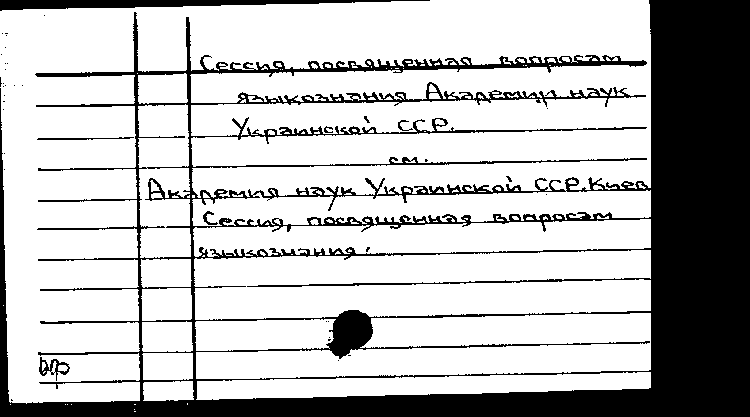 Сессия, посвященная вопросам
языкознания Академии наук
Украинской ССР.
см.
Академия наук Украинской ССР. Киев
Сессия, посвященная вопросам
языкознания.